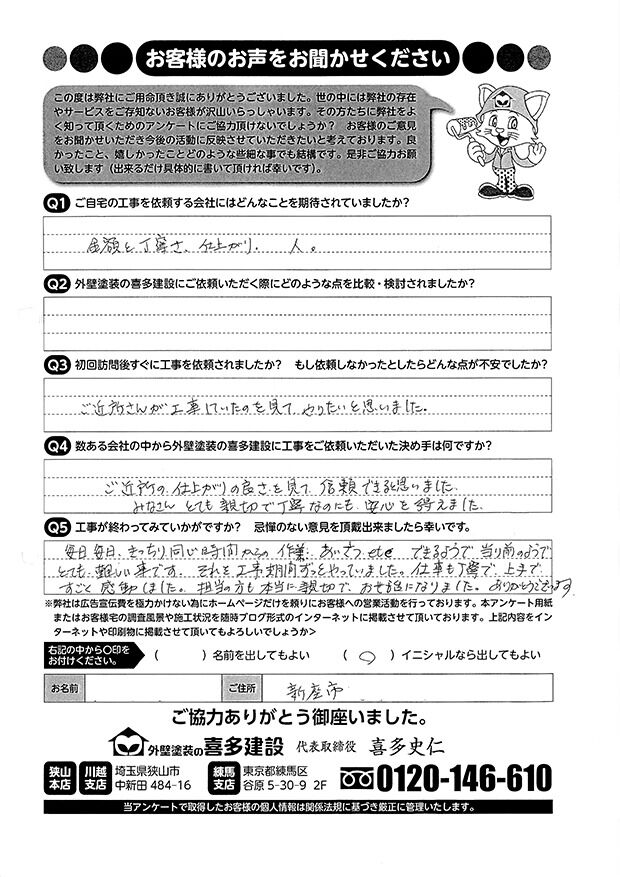 お客様のお声をお聞かせください
この度は弊社にご用命頂き誠にありがとうございました。世の中には弊社の存在
やサービスをご存知ないお客様が沢山いらっしゃいます。その方たちに弊社をよ
く知って頂くためのアンケートにご協力頂けないでしょうか？　お客様のご意見
をお聞かせいただき今後の活動に反映させていただきたいと考えております。良
かったこと、嬉しかったことどのような些細な事でも結構です。是非ご協力お願
い致します（出来るだけ具体的に書いて頂ければ幸いです）。
Q1 ご自宅の工事を依頼する会社にはどんなことを期待されていましたか？
金額と丁寧さ、仕上がり、人。
Q2 外壁塗装の喜多建設にご依頼いただく際にどのような点を比較・検討されましたか？
Q3 初回訪問後すぐに工事を依頼されましたか？　もし依頼しなかったとしたらどんな点が不安でしたか？
ご近所さんが工事していたのを見て やりたいと思いました。
Q4 数ある会社の中から外壁塗装の喜多建設に工事をご依頼いただいた決め手は何ですか？
ご近所の仕上がりの良さを見て 信頼できると思いました。
みなさん とても 親切で丁寧なのにも 安心を得えました。
Q5 工事が終わってみていかがですか？　忌憚のない意見を頂戴出来ましたら幸いです。
毎日毎日、きっちり同じ時間からの 作業、あいさつ、etc できるようで 当り前のようで
とても 難しい事です。それを工事期間ずっとやっていました。仕事も丁寧で、上まで
すごく 感動しました。担当の方も本当に親切で、お世話になりました。ありがとうございます。
※弊社は広告宣伝費を極力かけない為にホームページだけを頼りにお客様への営業活動を行っております。本アンケート用紙
またはお客様宅の調査風景や施工状況を随時ブログ形式のインターネットに掲載させて頂いております。上記内容をイン
ターネットや印刷物に掲載させて頂いてもよろしいでしょうか＞
右記の中から〇印を
お付けください。
（　　）名前を出してもよい　（ ○ ）イニシャルなら出してもよい
お名前　ご住所　新座市
ご協力ありがとう御座いました。
外壁塗装の喜多建設　代表取締役　喜多史仁
狭山本店 川越支店 埼玉県狭山市中新田 484-16 練馬支店 東京都練馬区谷原 5-30-9 2F 0120-146-610
当アンケートで取得したお客様の個人情報は関係法規に基づき厳正に管理いたします。